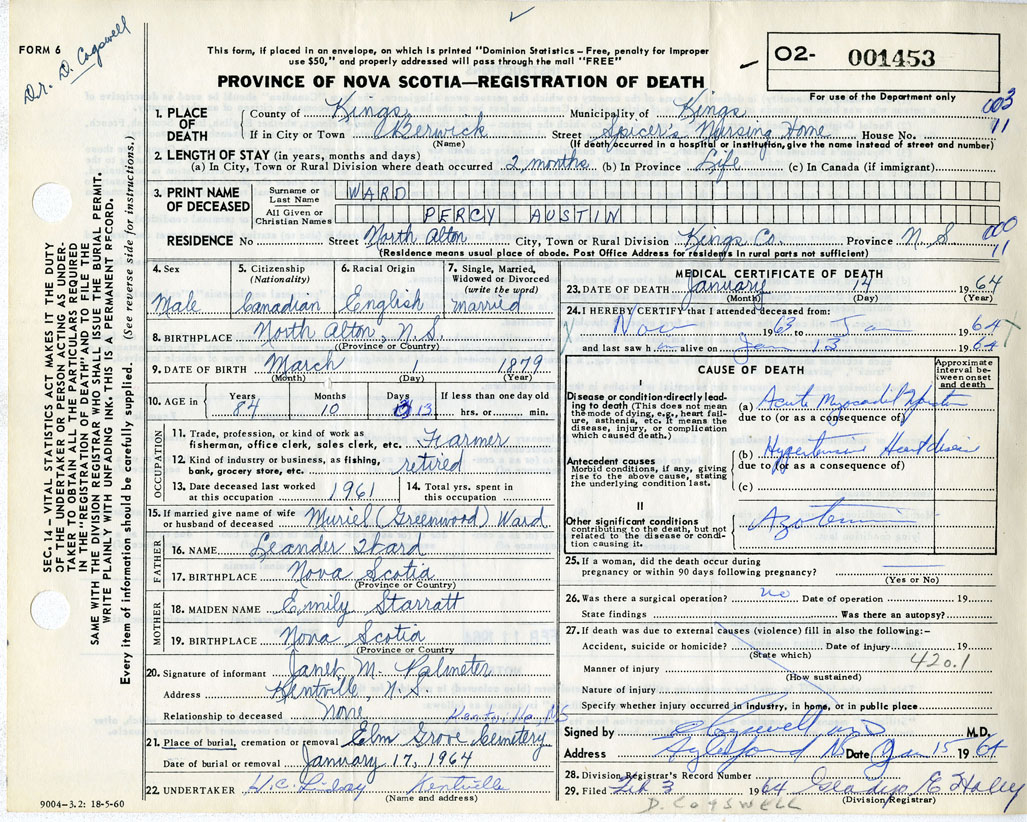 Dr. D. Cogswell
FORM 6
This form, if placed in an envelope, on which is printed "Dominion Statistics—Free, penalty for improper
use $50," and properly addressed will pass through the mail "FREE"
PROVINCE OF NOVA SCOTIA—REGISTRATION OF DEATH
O2- 001453
For use of the Department only
003
11
1. PLACE OF DEATH
County of Kings Municipality of Kings
If in City or Town Berwick Street Spicer's Nursing Home House No.
(Name) (If death occurred in a hospital or institution, give the name instead of street and number)
2. LENGTH OF STAY (in years, months and days)
(a) In City, Town or Rural Division where death occurred 2 months (b) In Province Life (c) In Canada (if immigrant)
3. PRINT NAME OF DECEASED
Surname or Last Name WARD
All Given or Christian Names PERCY AUSTIN
000
11
RESIDENCE No Street North Alton City, Town or Rural Division Kings Co. Province N. S
(Residence means usual place of abode. Post Office Address for residents in rural parts not sufficient)
4. Sex Male
5. Citizenship (Nationality) Canadian
6. Racial Origin English
7. Single, Married, Widowed or Divorced (write the word) married
8. BIRTHPLACE North Alton, N.S.
(Province or Country)
9. DATE OF BIRTH March 1 1879
(Month) (Day) (Year)
10. AGE in Years 84 Months 10 Days 13 If less than one day old hrs. or min.
OCCUPATION
11. Trade, profession, or kind of work as fisherman, office clerk, sales clerk, etc. Farmer
12. Kind of industry or business, as fishing, bank, grocery store, etc. retired
13. Date deceased last worked at this occupation 1961
14. Total yrs. spent in this occupation
15. If married give name of wife or husband of deceased Muriel (Greenwood) Ward
FATHER
16. NAME Leander Ward
17. BIRTHPLACE Nova Scotia
(Province or Country)
MOTHER
18. MAIDEN NAME Emily Starratt
19. BIRTHPLACE Nova Scotia
(Province or Country
20. Signature of informant Janet M. Palmeter
Address Kentville, N. S.
Relationship to deceased None
21. Place of burial, cremation or removal Elm Grove Cemetery
Date of burial or removal January 17, 1964
22. UNDERTAKER H. C. Lindsay Kentville
(Name and address)
9004-3.2: 18-5-60
MEDICAL CERTIFICATE OF DEATH
23. DATE OF DEATH January 14 1964
(Month) (Day) (Year)
24. I HEREBY CERTIFY that I attended deceased from:
Nov 1963 to Jan 1964
and last saw h alive on Jan 13 1964
CAUSE OF DEATH
Approximate interval between onset and death
I
Disease or condition directly leading to death (This does not mean the mode of dying, e.g., heart failure, asthenia, etc. It means the disease, injury, or complication which caused death.)
(a) Acute Myocardial
due to (or as a consequence of)
Antecedent causes
Morbid conditions, if any, giving rise to the above cause, stating the underlying condition last.
(b) Hypertensive Heart disease
due to (or as a consequence of)
(c)
II
Other significant conditions contributing to the death, but not related to the disease or condition causing it.
Azotemia
25. If a woman, did the death occur during pregnancy or within 90 days following pregnancy?
(Yes or No)
26. Was there a surgical operation? no Date of operation 19
State findings Was there an autopsy?
27. If death was due to external causes (violence) fill in also the following:—
Accident, suicide or homicide? Date of injury 19
(State which) 420.1
Manner of injury
(How sustained)
Nature of injury
Specify whether injury occurred in industry, in home, or in public place
Signed by Cogswell MD M.D.
Address Aylesford NS Date Jan 15 1964
28. Division Registrar's Record Number
29. Filed Feb 3 1964 Gladys E Haley
(Division Registrar)
D. COGSWELL
SEC. 14 – VITAL STATISTICS ACT MAKES IT THE DUTY
OF THE UNDERTAKER OR PERSON ACTING AS UNDER-
TAKER TO OBTAIN ALL THE PARTICULARS REQUIRED
IN THE "REGISTRATION OF DEATH" AND TO FILE THE
SAME WITH THE DIVISION REGISTRAR WHO SHALL ISSUE THE BURIAL PERMIT.
WRITE PLAINLY WITH UNFADING INK. THIS IS A PERMANENT RECORD.
Every item of information should be carefully supplied. (See reverse side for instructions.)